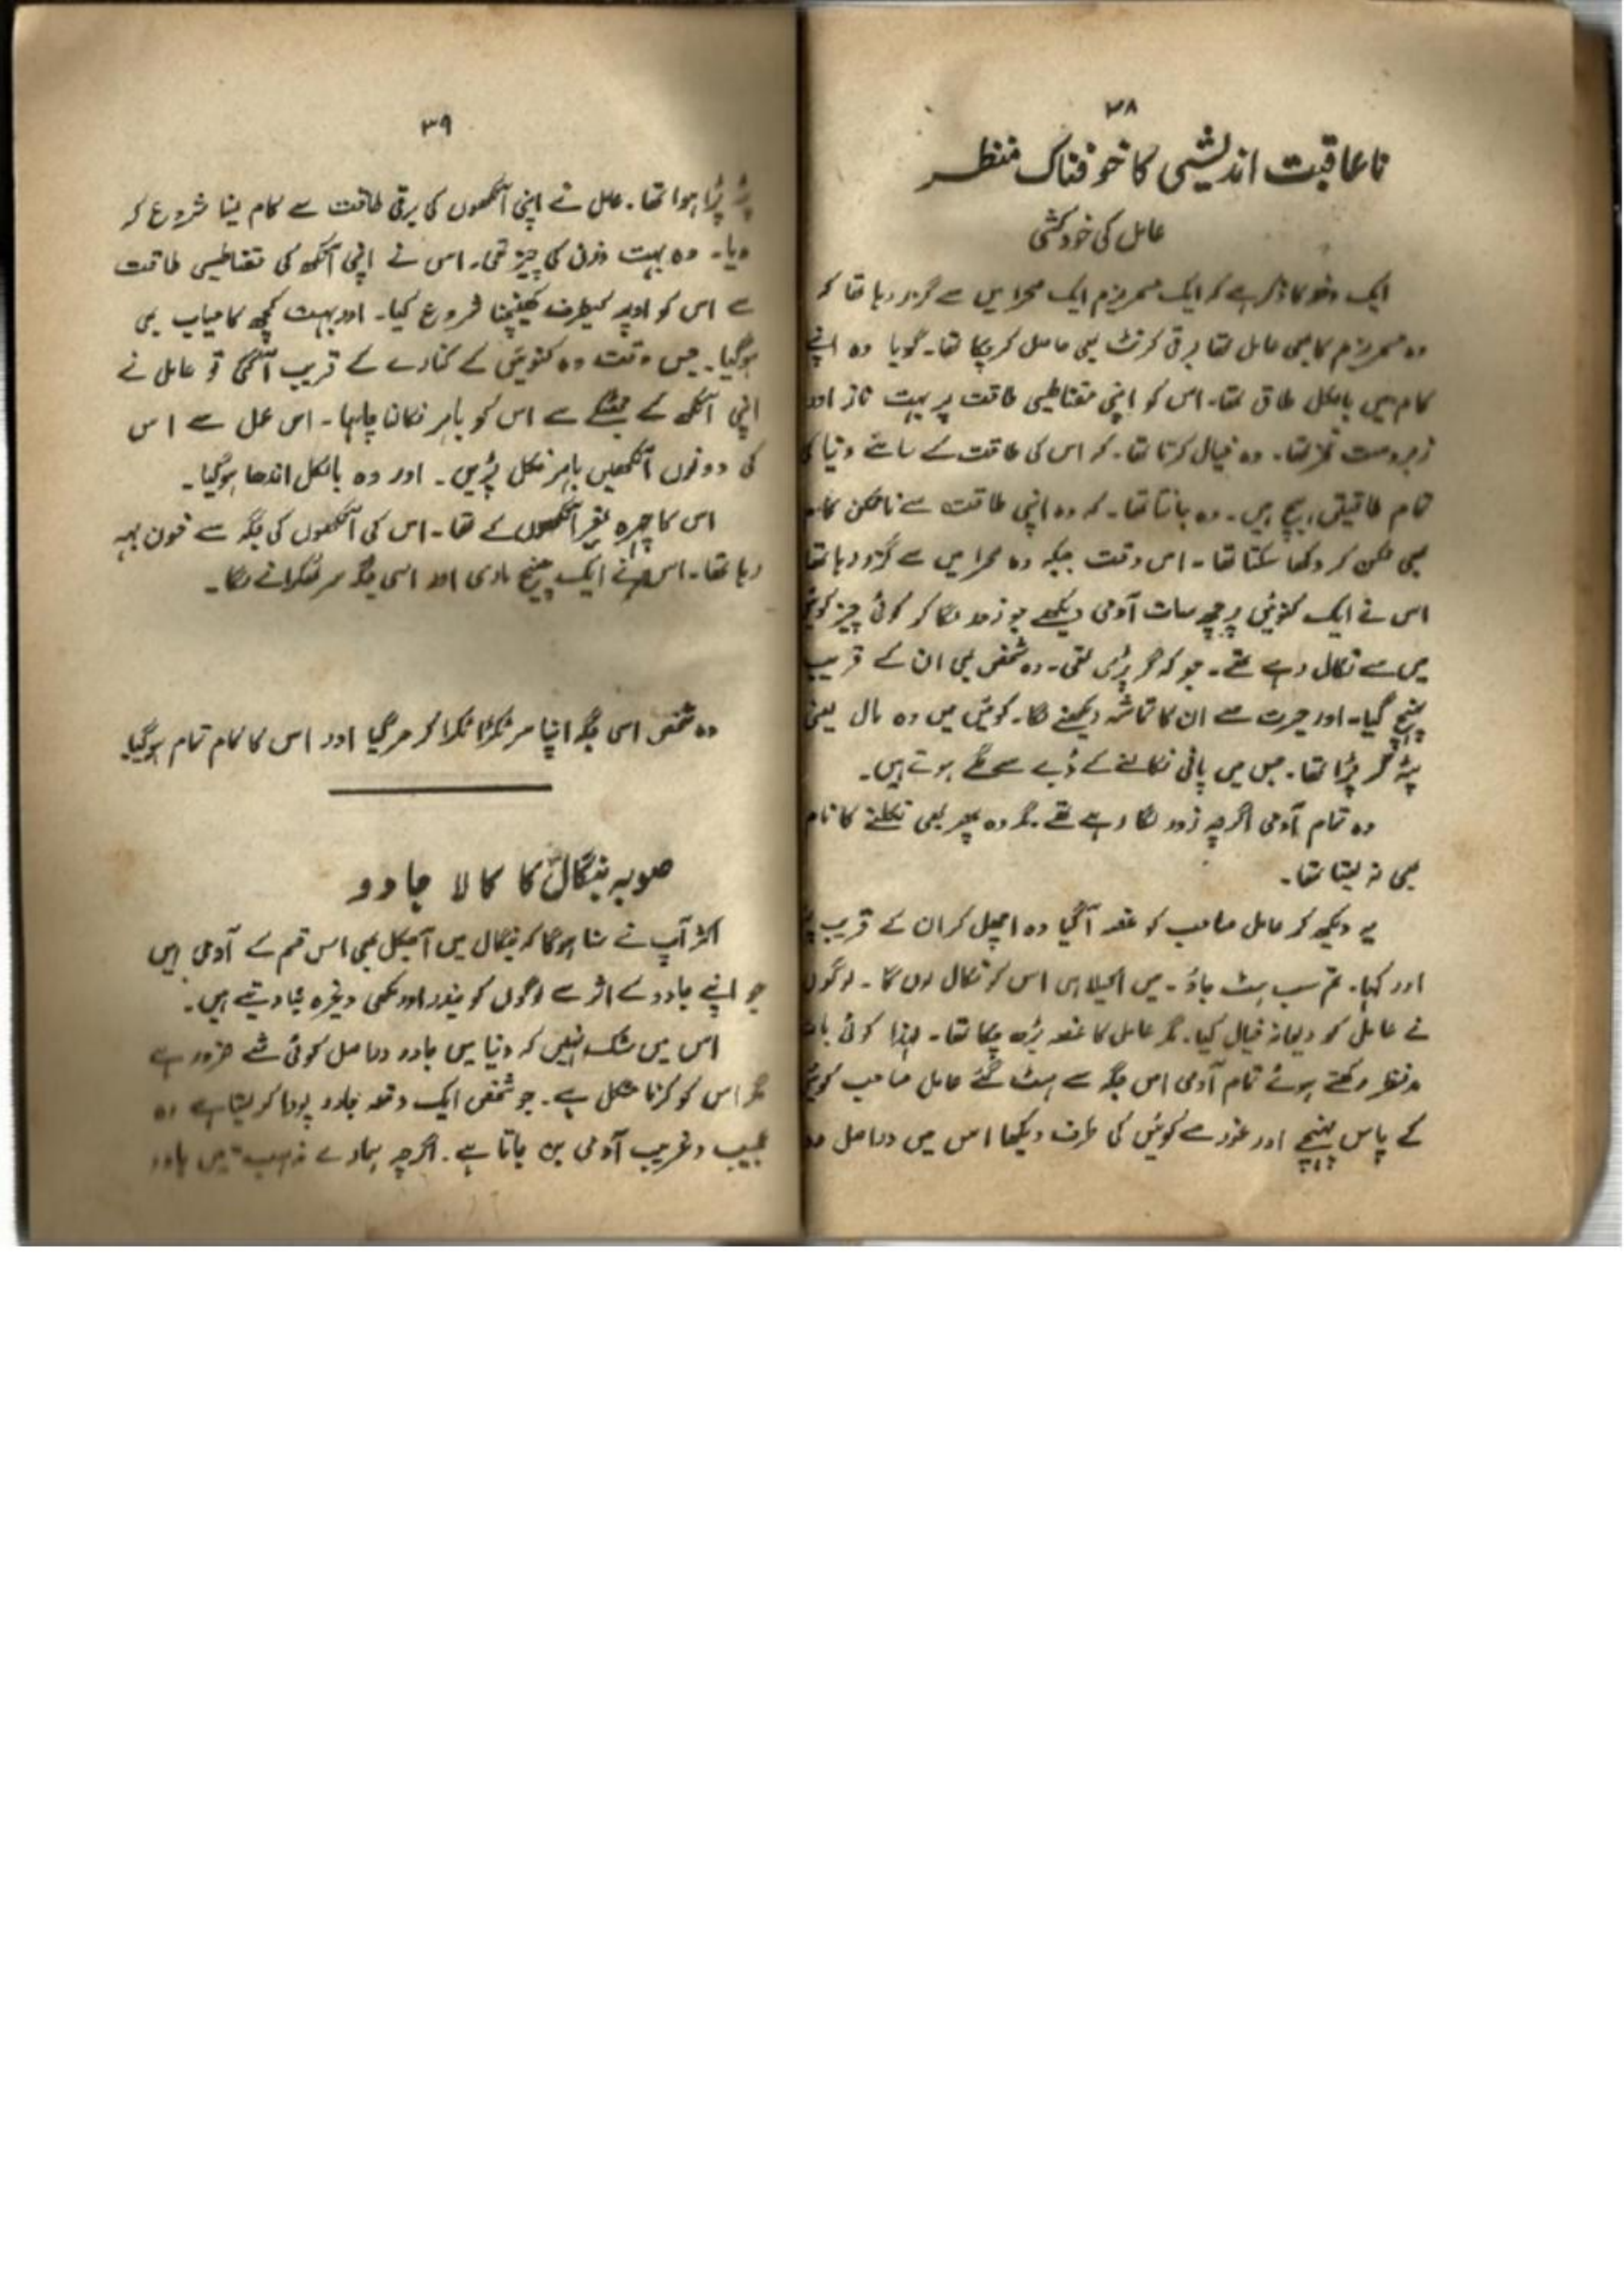 ٣٨
ناعاقبت اندیشی کا خوفناک منظر
عامل کی خودکشی
ایک دفعہ کا ذکر ہے کہ ایک مسمریزم ایک صحرا میں سے گزر رہا تھا کہ
وہ مسمریزم کا بھی عامل تھا برقی کرنٹ بھی حاصل کر چکا تھا۔ گویا وہ اپنے
کام میں بالکل طاق تھا۔ اس کو اپنی مقناطیسی طاقت پر بہت ناز اور
زبردست فخر تھا۔ وہ خیال کرتا تھا۔ کہ اس کی طاقت کے سامنے دنیا کی
تمام طاقیتں ہیچ ہیں۔ وہ جانتا تھا۔ کہ وہ اپنی طاقت سے ناممکن کام
بھی ممکن کر دکھا سکتا تھا۔ اس وقت جبکہ وہ صحرا میں سے گزر رہا تھا
اس نے ایک کنوئیں پر چھ سات آدمی دیکھے جو زور لگا کر کوئی چیز کوئیں
میں سے نکال رہے تھے۔ جو کہ گر پڑی تھی۔ وہ شخص بھی ان کے قریب
پہنچ گیا۔ اور حیرت سے ان کا تماشہ دیکھنے لگا۔ کوئیں میں وہ مال یعنی
پٹہ گر پڑا تھا۔ جس میں پانی نکالنے کے ڈبے سے لگے ہوتے ہیں۔
وہ تمام آدمی اگرچہ زور لگا رہے تھے۔ مگر وہ پھر بھی نکلنے کا نام
بھی نہ لیتا تھا۔
یہ دیکھ کر عامل صاحب کو غصہ آگیا وہ اچھل کر ان کے قریب
اور کہا۔ تم سب ہٹ جاؤ۔ میں اکیلا ہی اس کو نکال لوں گا۔ لوگوں
نے عامل کو دیوانہ خیال کیا۔ مگر عامل کا غصہ بڑھ چکا تھا۔ لہذا کوئی بات
مدنظر رکھتے ہوئے تمام آدمی اس جگہ سے ہٹ گئے عامل صاحب کوئیں
کے پاس پہنچے اور غور سے کوئیں کی طرف دیکھا اس میں دراصل وہ
٣٩
پٹہ پڑا ہوا تھا۔ عامل نے اپنی آنکھوں کی برقی طاقت سے کام لینا شروع کر
دیا۔ وہ بہت وزن کی چیز تھی۔ اس نے اپنی آنکھ کی مقناطیسی طاقت
سے اس کو اوپر کیطرف کھینچنا شروع کیا۔ اور بہت کچھ کامیاب بھی
ہوگیا۔ جس وقت وہ کنوئیں کے کنارے کے قریب آگئی تو عامل نے
اپنی آنکھ کے جھٹکے سے اس کو باہر نکالنا چاہا۔ اس عمل سے اس
کی دونوں آنکھیں باہر نکل پڑیں۔ اور وہ بالکل اندھا ہوگیا۔
اس کا چہرہ بغیر آنکھوں کے تھا۔ اس کی آنکھوں کی جگہ سے خون بہہ
رہا تھا۔ اس نے ایک چیخ ماری اور اسی جگہ سر ٹکرانے لگا۔
وہ شخص اسی جگہ اپنا سر ٹکرا ٹکرا کر مرگیا اور اس کا کام تمام ہوگیا
صوبہ بنگال کا کالا جادو
اکثر آپ نے سنا ہوگا کہ بنگال میں آجکل بھی اس قسم کے آدمی ہیں
جو اپنے جادو کے اثر سے لوگوں کو بندر اور مکھی وغیرہ بنا دیتے ہیں۔
اس میں شک نہیں کہ دنیا میں جادو دراصل کوئی شے ضرور ہے
مگر اس کو کرنا مشکل ہے۔ جو شخص ایک دفعہ جادو پورا کر لیتا ہے وہ
عجیب و غریب آدمی بن جاتا ہے۔ اگرچہ ہمارے مذہب میں جادو